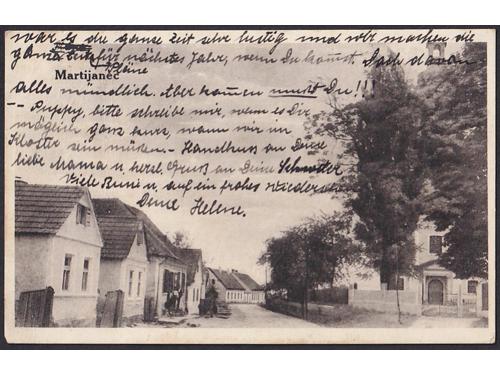 war es du ganze zeit sehr lustig und wir machen die
ganze Pläne für nächstes Jahr, wenn Du kommst. Doch davon
Martijanec
alles mündlich. Aber kommen musst Du!!!
-- Puppy, bitte schreibe mir, wenn es Dir
möglich ganz kurz, wann wir im
Kloster sein müssen. - Handkuss an Deine
liebe Mama u. herzl. Gruss an Deine Schwester
Viele Bussi u. auf ein frohes Wiedersehen
Deine Helene.